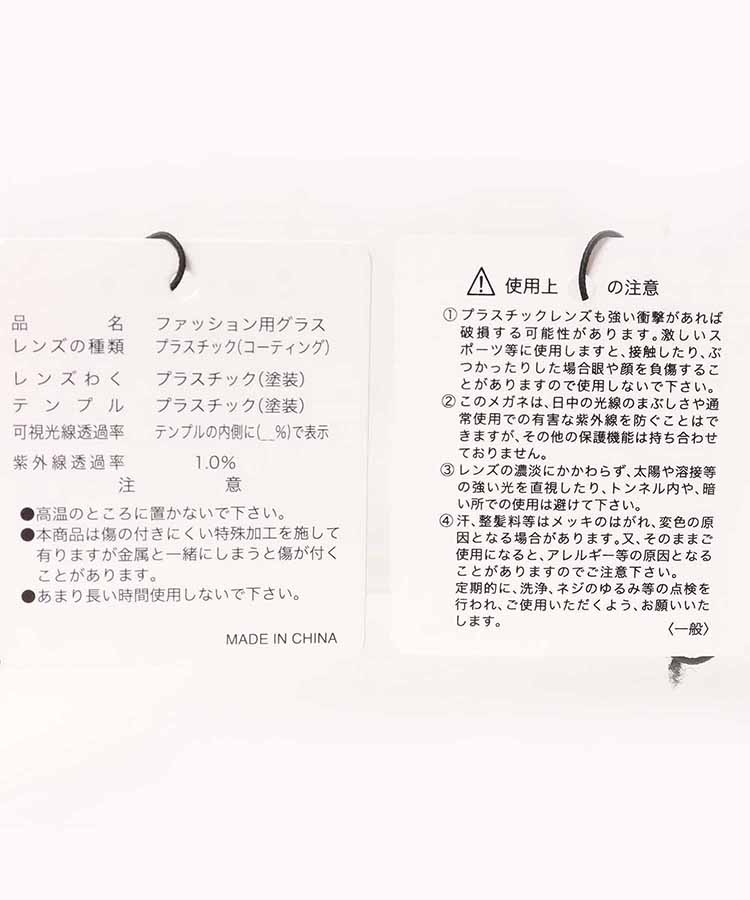 品名 ファッション用グラス
レンズの種類 プラスチック(コーティング)
レンズわく プラスチック(塗装)
テンプル プラスチック(塗装)
可視光線透過率 テンプルの内側に(__%)で表示
紫外線透過率 1.0%
注意
●高温のところに置かないで下さい。
●本商品は傷の付きにくい特殊加工を施して
有りますが金属と一緒にしまうと傷が付く
ことがあります。
●あまり長い時間使用しないで下さい。
MADE IN CHINA
⚠ 使用上の注意
① プラスチックレンズも強い衝撃があれば
破損する可能性があります。激しいス
ポーツ等に使用しますと、接触したり、ぶ
つかったりした場合眼や顔を負傷するこ
とがありますので使用しないで下さい。
② このメガネは、日中の光線のまぶしさや通
常使用での有害な紫外線を防ぐことはで
きますが、その他の保護機能は持ち合わせ
ておりません。
③ レンズの濃淡にかかわらず、太陽や溶接等
の強い光を直視したり、トンネル内や、暗
い所での使用は避けて下さい。
④ 汗、整髪料等はメッキのはがれ、変色の原
因となる場合があります。又、そのままご
使用になると、アレルギー等の原因となる
ことがありますのでご注意下さい。
定期的に、洗浄、ネジのゆるみ等の点検を
行われ、ご使用いただくよう、お願いいた
します。
〈一般〉